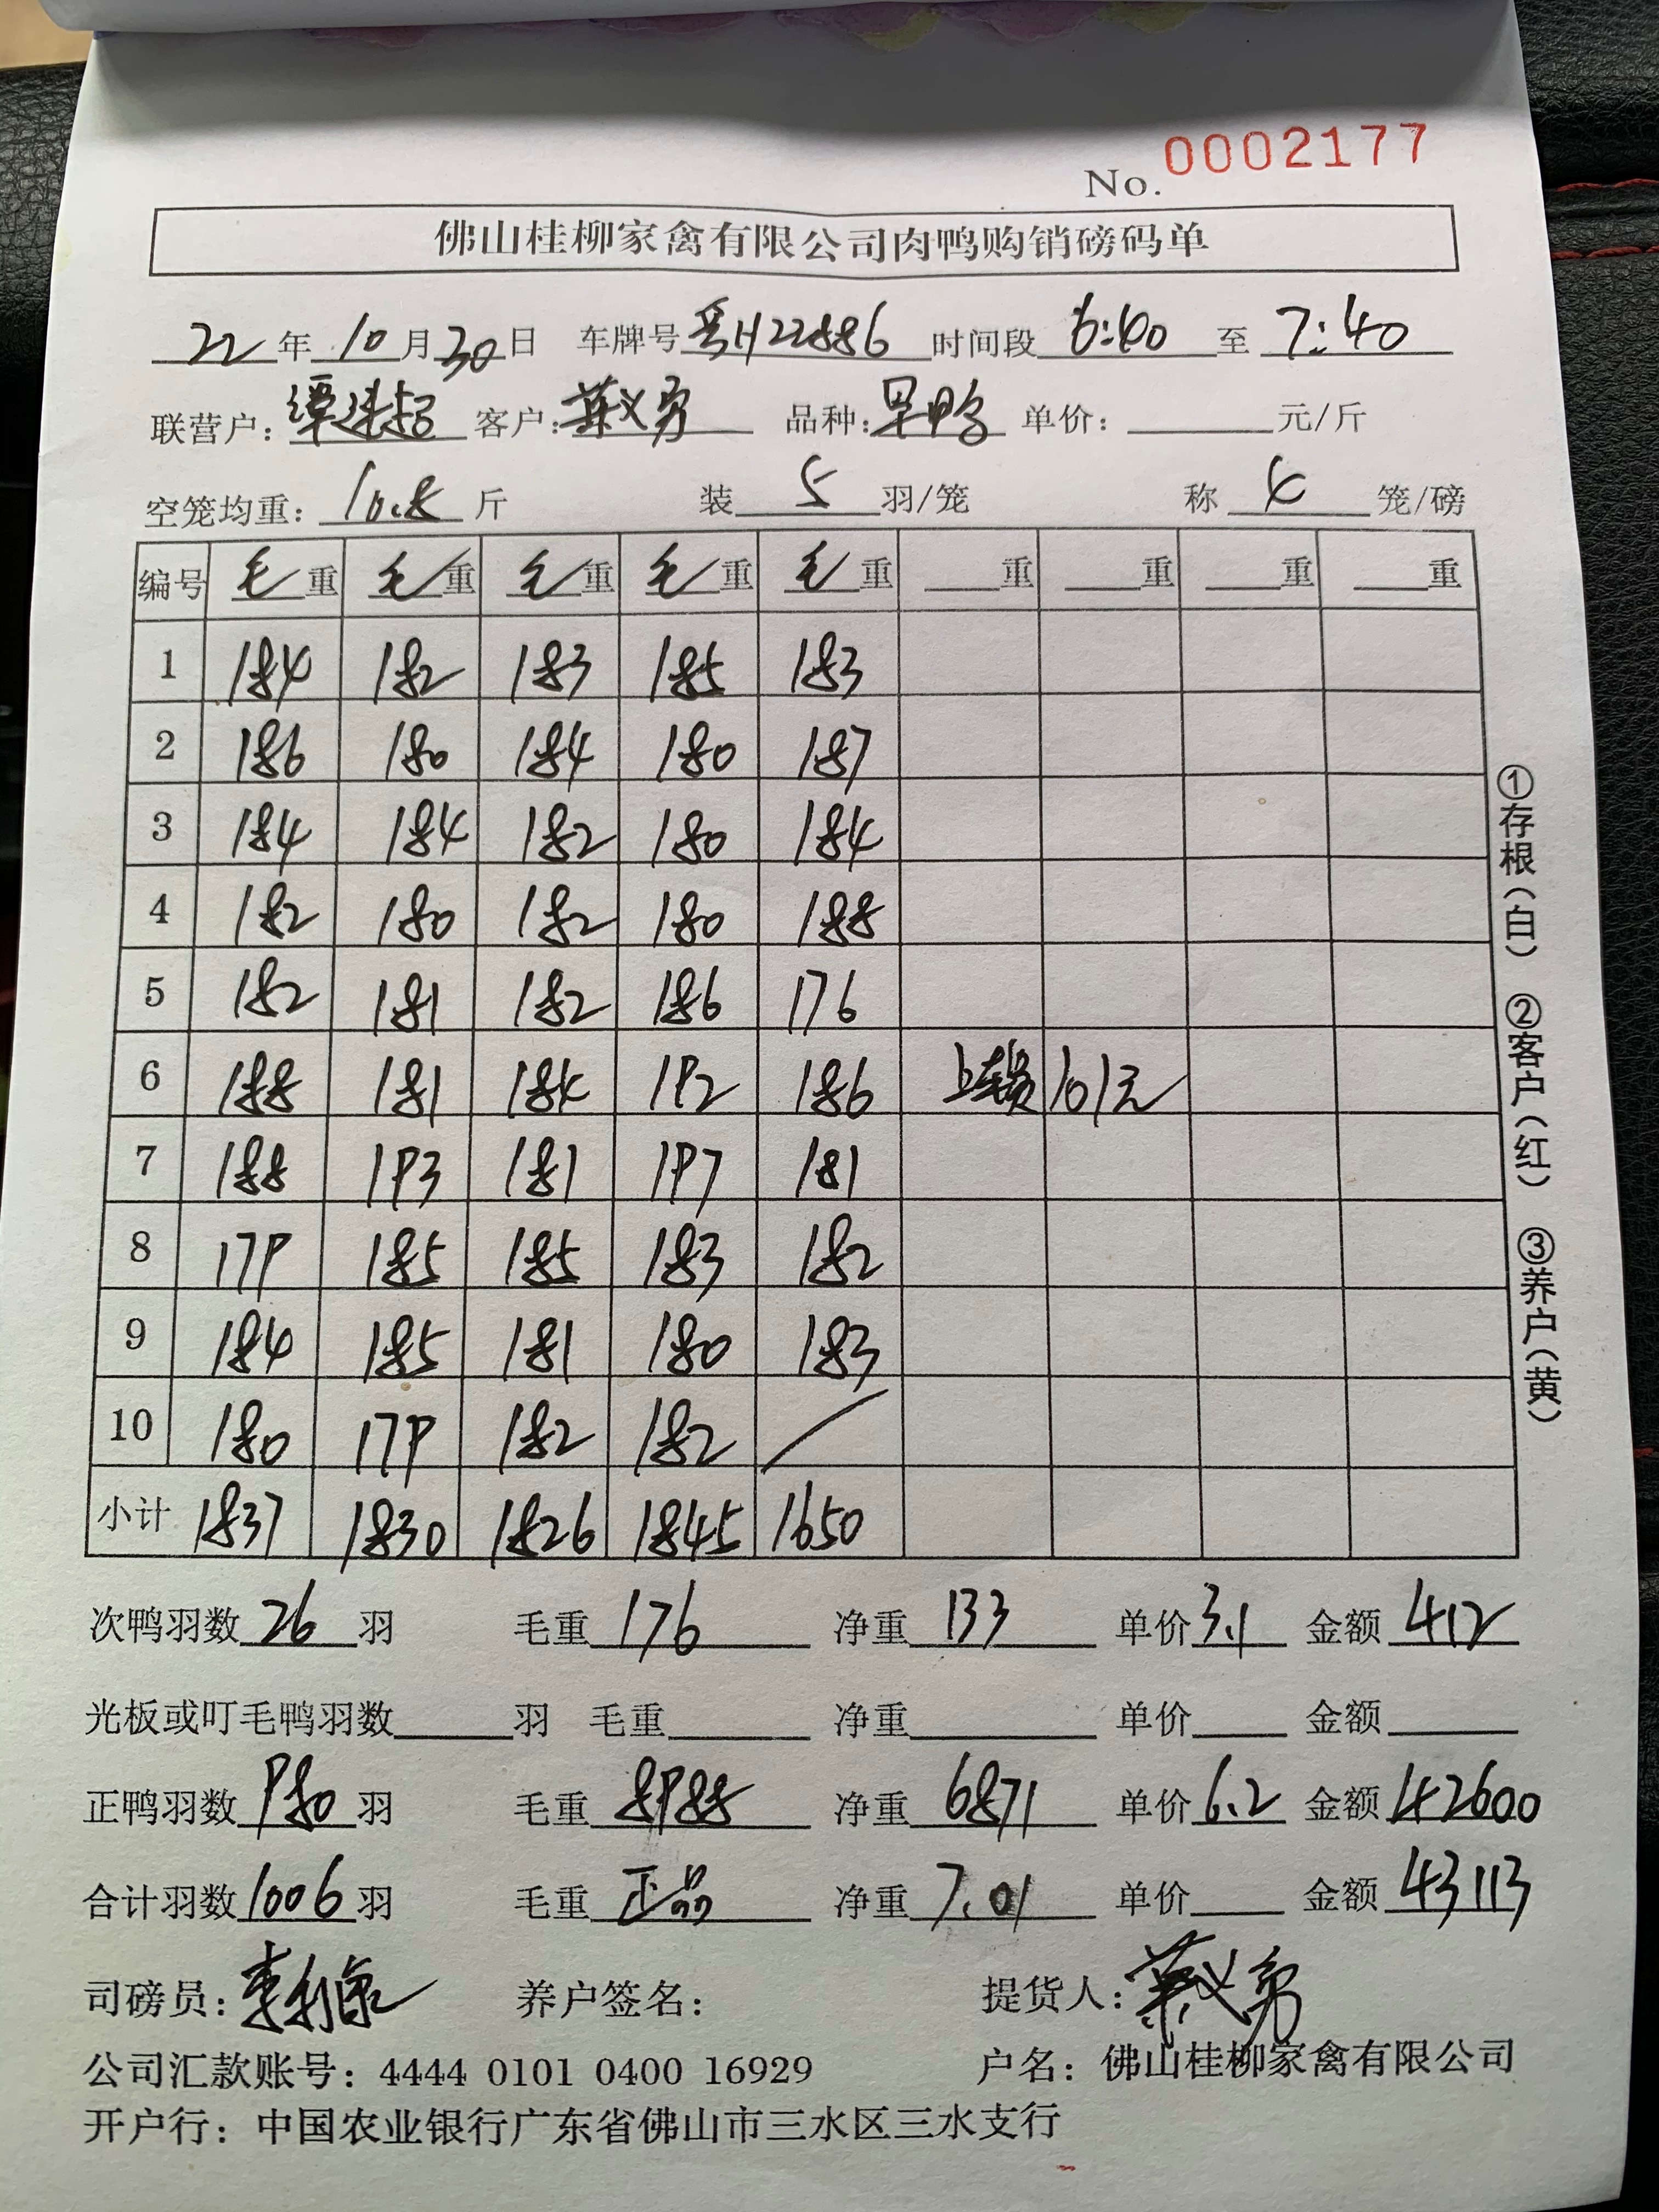 No. 0002177
佛山桂柳家禽有限公司肉鸭购销磅码单
22年10月30日 车牌号粤H22886 时间段6:40至7:40
联营户: 谭连超 客户: 叶义勇 品种: 旱鸭 单价: 元/斤
空笼均重: 10.8斤 装5羽/笼 称4笼/磅
编号 毛重 毛重 毛重 毛重 毛重 重 重 重 重
1 184 182 183 185 183
2 186 180 184 180 187
3 184 184 182 180 184
4 182 180 182 180 188
5 182 181 182 186 176
6 188 181 184 192 186 上车费 101元
7 188 193 181 197 181
8 179 185 185 183 182
9 184 185 181 180 183
10 180 179 182 182 /
小计 1837 1830 1826 1845 1650
次鸭羽数26羽 毛重176 净重133 单价3.1 金额412
光板或叮毛鸭羽数 羽 毛重 净重 单价 金额
正鸭羽数980羽 毛重8988 净重6871 单价6.2 金额42600
合计羽数1006羽 毛重正品 净重7.01 单价 金额43113
司磅员: 养户签名: 提货人:
公司汇款账号: 4444 0101 0400 16929 户名: 佛山桂柳家禽有限公司
开户行: 中国农业银行广东省佛山市三水区三水支行
①存根(白) ②客户(红) ③养户(黄)